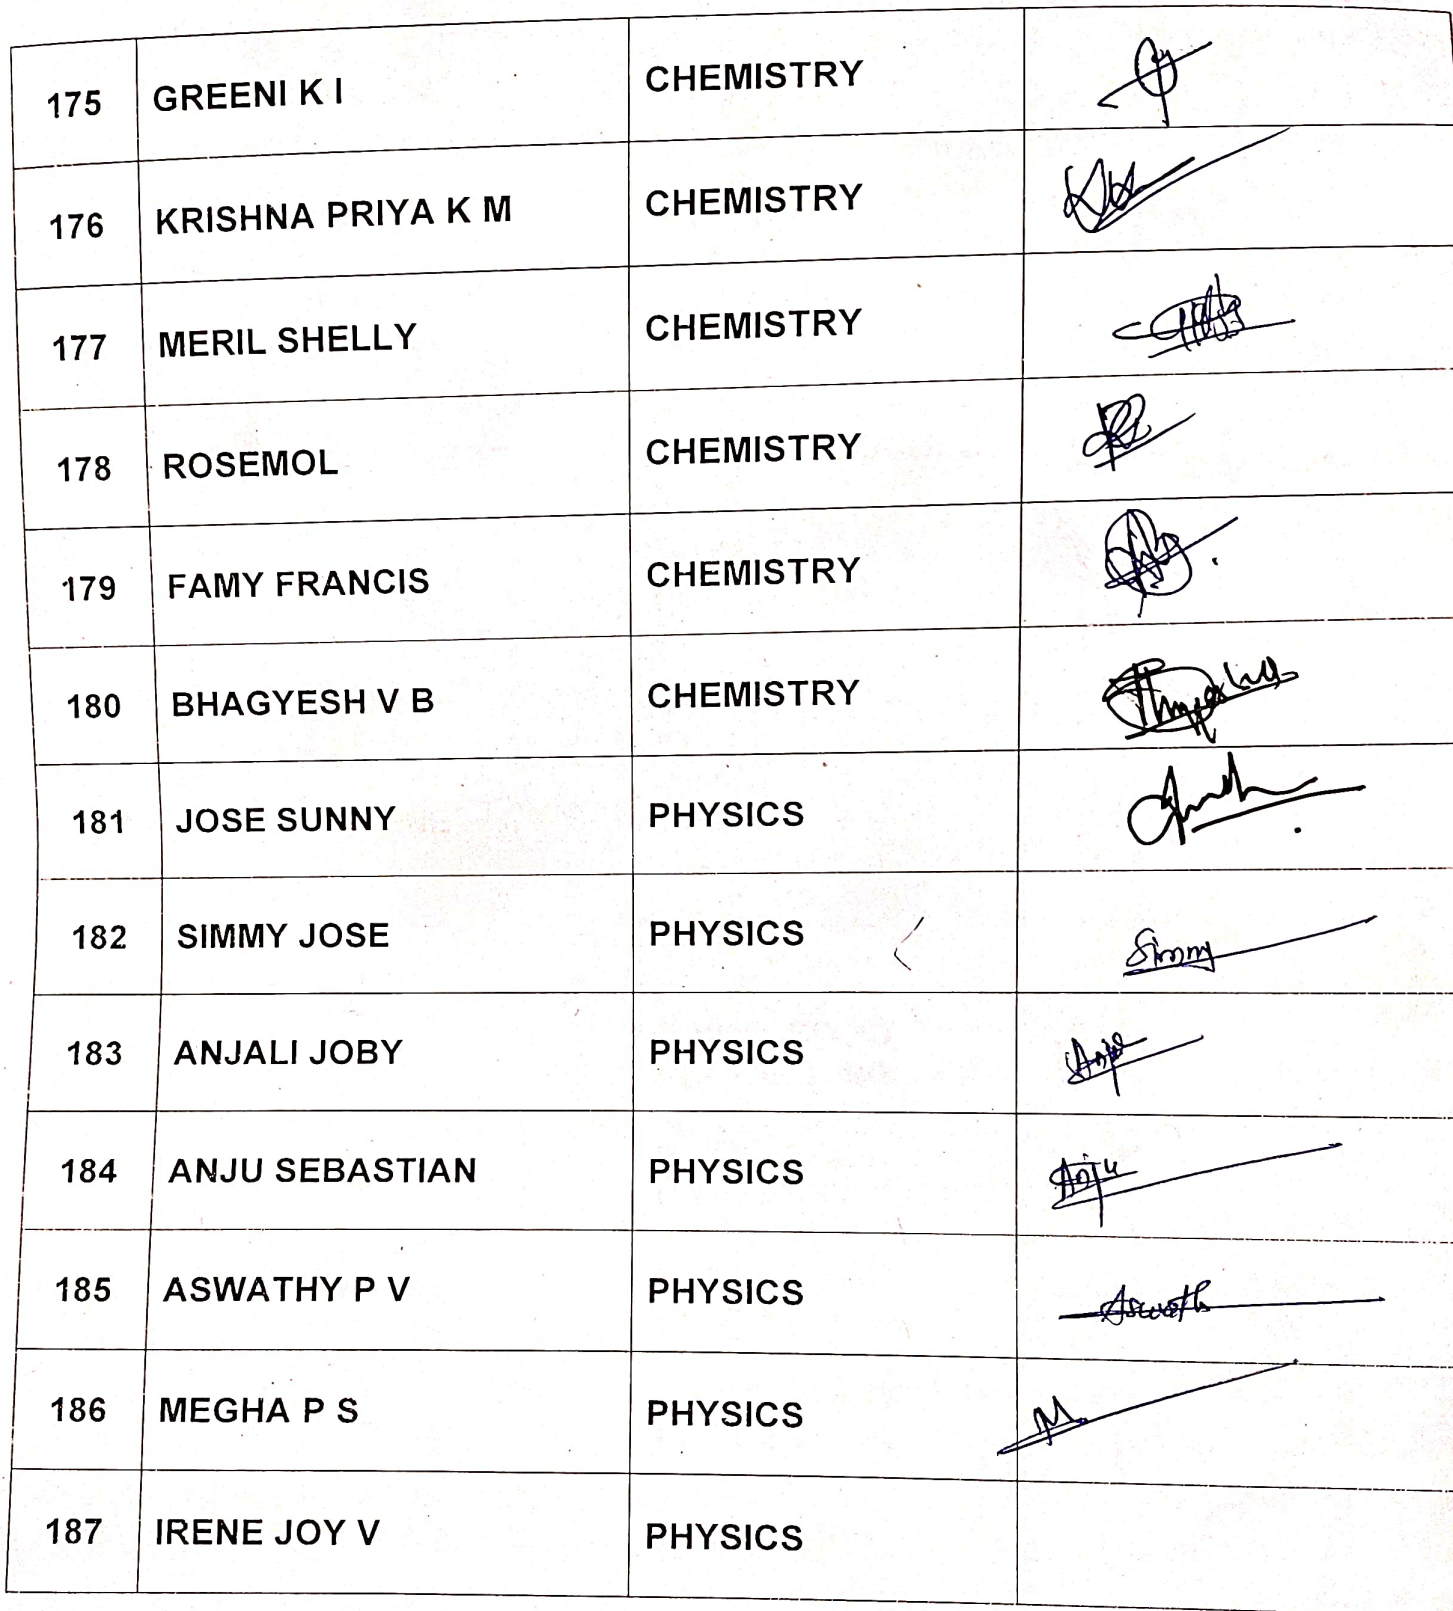 175 GREENI K I CHEMISTRY
176 KRISHNA PRIYA K M CHEMISTRY
177 MERIL SHELLY CHEMISTRY
178 ROSEMOL CHEMISTRY
179 FAMY FRANCIS CHEMISTRY
180 BHAGYESH V B CHEMISTRY
181 JOSE SUNNY PHYSICS
182 SIMMY JOSE PHYSICS Simmy
183 ANJALI JOBY PHYSICS
184 ANJU SEBASTIAN PHYSICS Anju
185 ASWATHY P V PHYSICS
186 MEGHA P S PHYSICS
187 IRENE JOY V PHYSICS